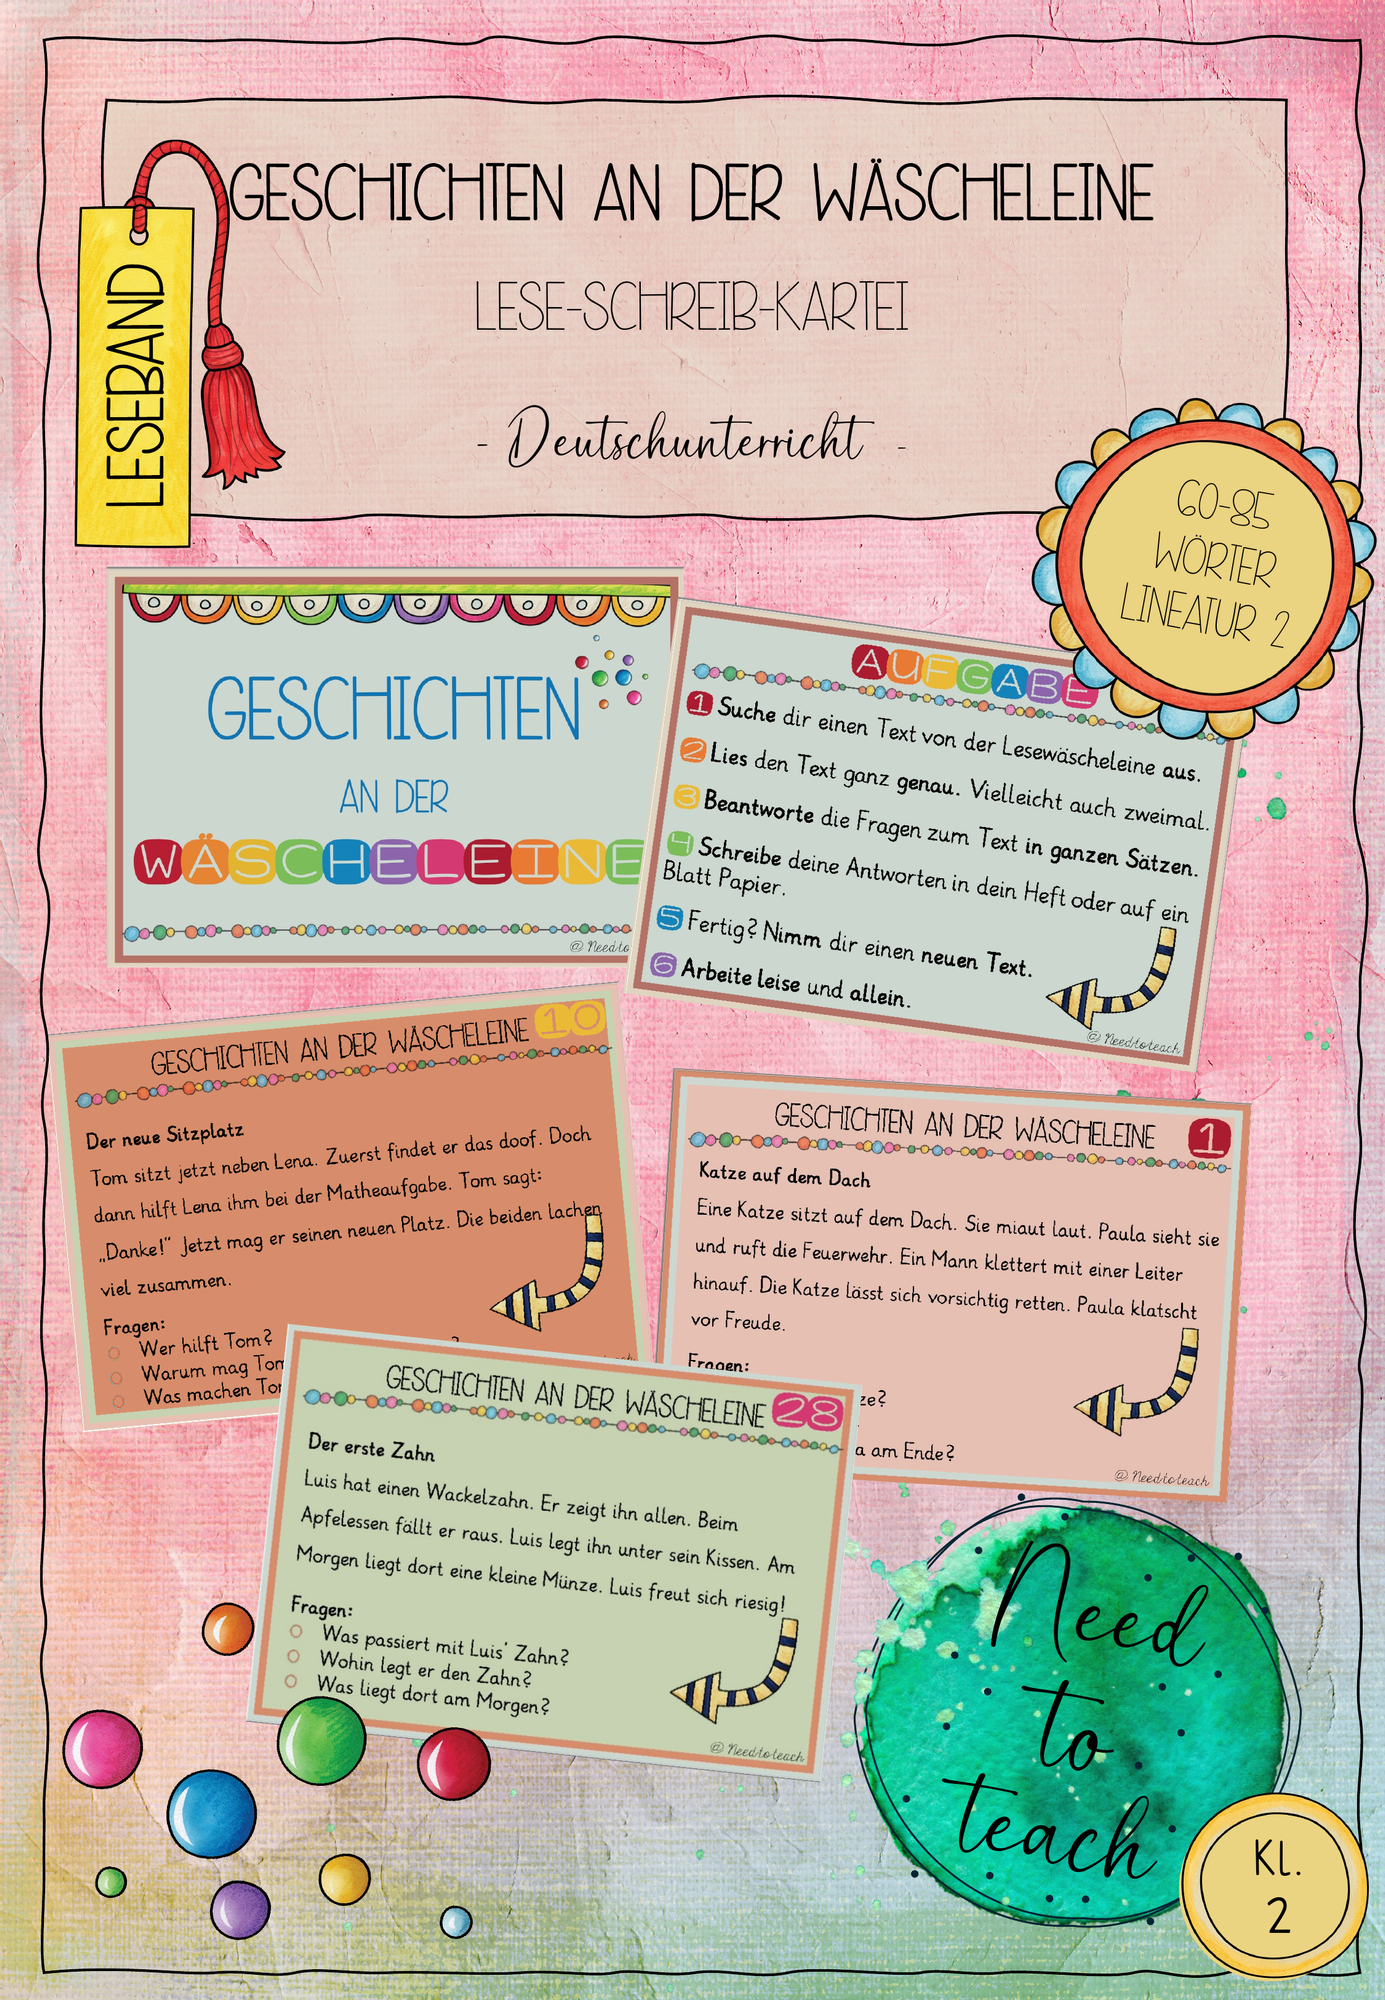 GESCHICHTEN AN DER WÄSCHELEINE
LESE-SCHREIB-KARTEI
- Deutschunterricht -
LESEBAND
60-85
WÖRTER
LINEATUR 2
GESCHICHTEN
AN DER
WÄSCHELEINE
@ Needto
AUFGABE
1 Suche dir einen Text von der Lesewäscheleine aus.
2 Lies den Text ganz genau. Vielleicht auch zweimal.
3 Beantworte die Fragen zum Text in ganzen Sätzen.
4 Schreibe deine Antworten in dein Heft oder auf ein
Blatt Papier.
5 Fertig? Nimm dir einen neuen Text.
6 Arbeite leise und allein.
@ Needtoteach
GESCHICHTEN AN DER WÄSCHELEINE 10
Der neue Sitzplatz
Tom sitzt jetzt neben Lena. Zuerst findet er das doof. Doch
dann hilft Lena ihm bei der Matheaufgabe. Tom sagt:
„Danke!“ Jetzt mag er seinen neuen Platz. Die beiden lachen
viel zusammen.
Fragen:
Wer hilft Tom?
Warum mag Tom
?
Was machen To
GESCHICHTEN AN DER WÄSCHELEINE 1
Katze auf dem Dach
Eine Katze sitzt auf dem Dach. Sie miaut laut. Paula sieht sie
und ruft die Feuerwehr. Ein Mann klettert mit einer Leiter
hinauf. Die Katze lässt sich vorsichtig retten. Paula klatscht
vor Freude.
Fragen:
ze?
a am Ende?
@ Needtoteach
GESCHICHTEN AN DER WÄSCHELEINE 28
Der erste Zahn
Luis hat einen Wackelzahn. Er zeigt ihn allen. Beim
Apfelessen fällt er raus. Luis legt ihn unter sein Kissen. Am
Morgen liegt dort eine kleine Münze. Luis freut sich riesig!
Fragen:
Was passiert mit Luis' Zahn?
Wohin legt er den Zahn?
Was liegt dort am Morgen?
@ Needtoteach
Need
to
teach
Kl.
2